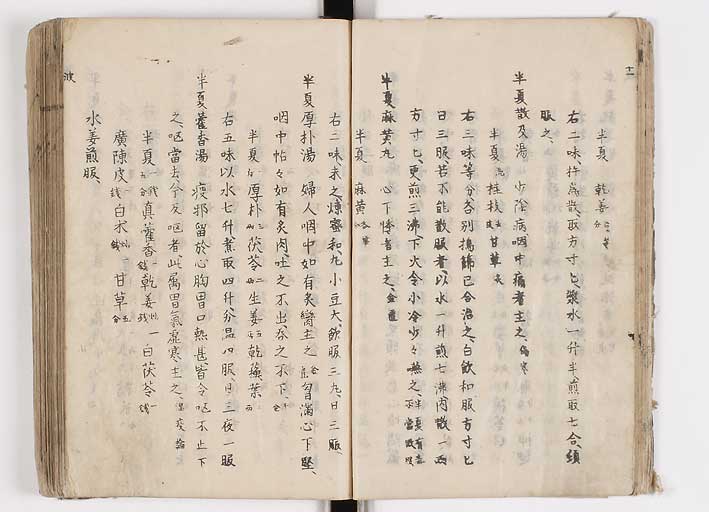 半夏 乾姜
右二味杵為散取方寸匕漿水一升半煎取七合頓
服之
半夏散及湯 少陰病咽中痛者主之 傷寒
半夏 桂枝 甘草
右三味等分各別搗篩已合治之白飲和服方寸匕
日三服若不能散服者以水一升煎七沸內散一兩
方寸匕更煎三沸下火令小冷少々嚥之 半夏有毒不當散服
半夏麻黄丸 心下悸者主之 金匱
半夏 麻黄
右二味末之煉蜜和丸小豆大飲服三丸日三服
半夏厚朴湯 婦人咽中如有炙臠主之 胸満心下堅
咽中怗々如有炙肉吐之不出吞之不下
半夏 厚朴 茯苓 生姜 乾蘇葉
右五味以水七升煮取四升分温四服日三夜一服
半夏藿香湯 疫邪留於心胸胃口熱甚皆令呕不止下
之呕當去今反呕者此属胃氣虚寒主之 温疫論
半夏 真藿香 乾姜 白茯苓
廣陳皮 白朮 甘草
水姜煎服